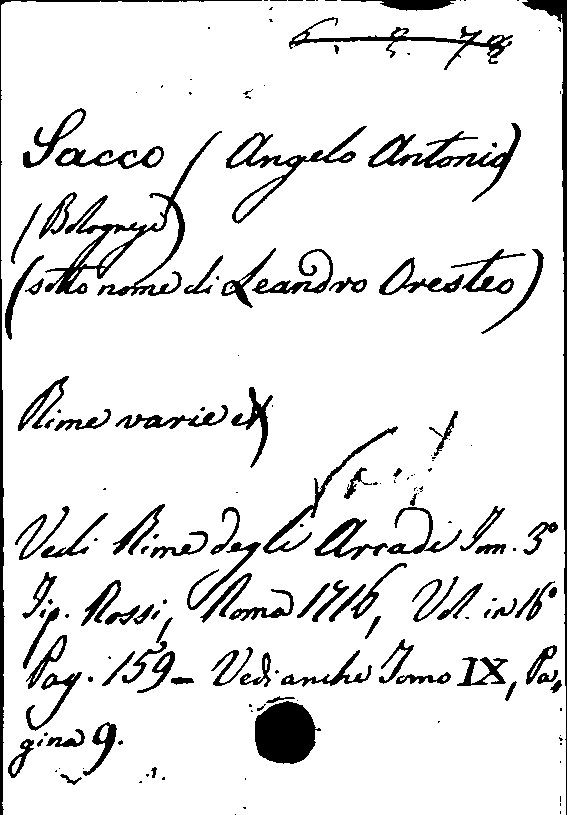 6. 8. 78
Sacco (Angelo Antonio)
(Bolognese)
(sotto nome di Leandro Oresteo)
Rime varie
Vedi Rime degli Arcadi Tom. 3°
Tip. Rossi, Roma 1716, Vol. in 16°
Pag. 159 - Vedi anche Tomo IX, Pa,
gina 9.